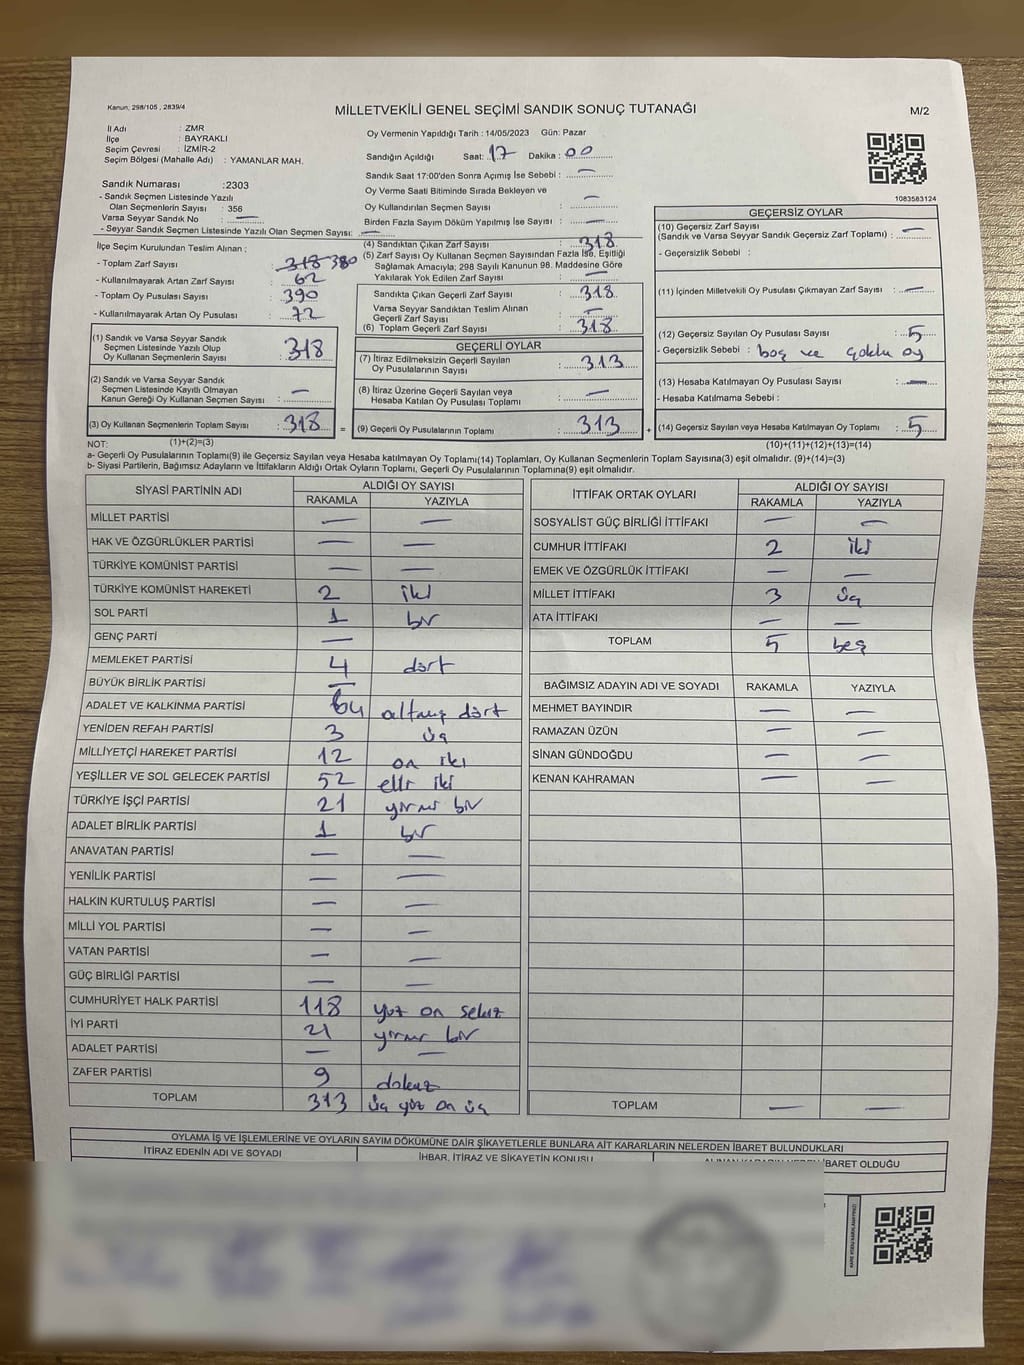 Kanun; 298/105 , 2839/4
MİLLETVEKİLİ GENEL SEÇİMİ SANDIK SONUÇ TUTANAĞI
M/2
İl Adı : ZMR
İlçe : BAYRAKLI
Seçim Çevresi : İZMİR-2
Seçim Bölgesi (Mahalle Adı) : YAMANLAR MAH.
Oy Vermenin Yapıldığı Tarih : 14/05/2023 Gün: Pazar
Sandığın Açıldığı Saat: 17 Dakika : 00
Sandık Saat 17:00'den Sonra Açımış İse Sebebi : —
Oy Verme Saati Bitiminde Sırada Bekleyen ve
Oy Kullandırılan Seçmen Sayısı : —
Birden Fazla Sayım Döküm Yapılmış İse Sayısı : —
1083583124
Sandık Numarası :2303
- Sandık Seçmen Listesinde Yazılı
Olan Seçmenlerin Sayısı : 356
Varsa Seyyar Sandık No : —
- Seyyar Sandık Seçmen Listesinde Yazılı Olan Seçmen Sayısı: —
İlçe Seçim Kurulundan Teslim Alınan :
- Toplam Zarf Sayısı : 318 380
- Kullanılmayarak Artan Zarf Sayısı : 62
- Toplam Oy Pusulası Sayısı : 390
- Kullanılmayarak Artan Oy Pusulası : 72
(1) Sandık ve Varsa Seyyar Sandık
Seçmen Listesinde Yazılı Olup
Oy Kullanan Seçmenlerin Sayısı : 318
(2) Sandık ve Varsa Seyyar Sandık
Seçmen Listesinde Kayıtlı Olmayan
Kanun Gereği Oy Kullanan Seçmen Sayısı : —
(3) Oy Kullanan Seçmenlerin Toplam Sayısı : 318
(4) Sandıktan Çıkan Zarf Sayısı : 318
(5) Zarf Sayısı Oy Kullanan Seçmen Sayısından Fazla İse, Eşitliği
Sağlamak Amacıyla; 298 Sayılı Kanunun 98. Maddesine Göre
Yakılarak Yok Edilen Zarf Sayısı : —
Sandıkta Çıkan Geçerli Zarf Sayısı : 318
Varsa Seyyar Sandıktan Teslim Alınan
Geçerli Zarf Sayısı : —
(6) Toplam Geçerli Zarf Sayısı : 318
GEÇERLİ OYLAR
(7) İtiraz Edilmeksizin Geçerli Sayılan
Oy Pusulalarının Sayısı : 313
(8) İtiraz Üzerine Geçerli Sayılan veya
Hesaba Katılan Oy Pusulası Toplamı : —
= (9) Geçerli Oy Pusulalarının Toplamı : 313
GEÇERSİZ OYLAR
(10) Geçersiz Zarf Sayısı
(Sandık ve Varsa Seyyar Sandık Geçersiz Zarf Toplamı) : —
- Geçersizlik Sebebi :
(11) İçinden Milletvekili Oy Pusulası Çıkmayan Zarf Sayısı : —
(12) Geçersiz Sayılan Oy Pusulası Sayısı : 5
- Geçersizlik Sebebi : boş ve çoklu oy
(13) Hesaba Katılmayan Oy Pusulası Sayısı : —
- Hesaba Katılmama Sebebi :
+ (14) Geçersiz Sayılan veya Hesaba Katılmayan Oy Toplamı : 5
NOT: (1)+(2)=(3)
(10)+(11)+(12)+(13)=(14)
a- Geçerli Oy Pusulalarının Toplamı(9) ile Geçersiz Sayılan veya Hesaba Katılmayan Oy Toplamı(14) Toplamları, Oy Kullanan Seçmenlerin Toplam Sayısına(3) eşit olmalıdır. (9)+(14)=(3)
b- Siyasi Partilerin, Bağımsız Adayların ve İttifakların Aldığı Ortak Oyların Toplamı, Geçerli Oy Pusulalarının Toplamına(9) eşit olmalıdır.
SİYASİ PARTİNİN ADI ALDIĞI OY SAYISI
RAKAMLA YAZIYLA
MİLLET PARTİSİ — —
HAK VE ÖZGÜRLÜKLER PARTİSİ — —
TÜRKİYE KOMÜNİST PARTİSİ — —
TÜRKİYE KOMÜNİST HAREKETİ 2 iki
SOL PARTİ 1 bir
GENÇ PARTİ —
MEMLEKET PARTİSİ 4 dört
BÜYÜK BİRLİK PARTİSİ —
ADALET VE KALKINMA PARTİSİ 64 altmış dört
YENİDEN REFAH PARTİSİ 3 üç
MİLLİYETÇİ HAREKET PARTİSİ 12 on iki
YEŞİLLER VE SOL GELECEK PARTİSİ 52 elli iki
TÜRKİYE İŞÇİ PARTİSİ 21 yirmi bir
ADALET BİRLİK PARTİSİ 1 bir
ANAVATAN PARTİSİ — —
YENİLİK PARTİSİ — —
HALKIN KURTULUŞ PARTİSİ — —
MİLLİ YOL PARTİSİ — —
VATAN PARTİSİ — —
GÜÇ BİRLİĞİ PARTİSİ — —
CUMHURİYET HALK PARTİSİ 118 yüz on sekiz
İYİ PARTİ 21 yirmi bir
ADALET PARTİSİ — —
ZAFER PARTİSİ 9 dokuz
TOPLAM 313 üç yüz on üç
İTTİFAK ORTAK OYLARI ALDIĞI OY SAYISI
RAKAMLA YAZIYLA
SOSYALİST GÜÇ BİRLİĞİ İTTİFAKI — —
CUMHUR İTTİFAKI 2 iki
EMEK VE ÖZGÜRLÜK İTTİFAKI — —
MİLLET İTTİFAKI 3 üç
ATA İTTİFAKI — —
TOPLAM 5 beş
BAĞIMSIZ ADAYIN ADI VE SOYADI RAKAMLA YAZIYLA
MEHMET BAYINDIR — —
RAMAZAN ÜZÜN — —
SİNAN GÜNDOĞDU — —
KENAN KAHRAMAN — —
TOPLAM — —
OYLAMA İŞ VE İŞLEMLERİNE VE OYLARIN SAYIM DÖKÜMÜNE DAİR ŞİKAYETLERLE BUNLARA AİT KARARLARIN NELERDEN İBARET BULUNDUKLARI
İTİRAZ EDENİN ADI VE SOYADI
İHBAR, İTİRAZ VE ŞİKAYETİN KONUSU
ALINAN KARARIN NEDEN İBARET OLDUĞU